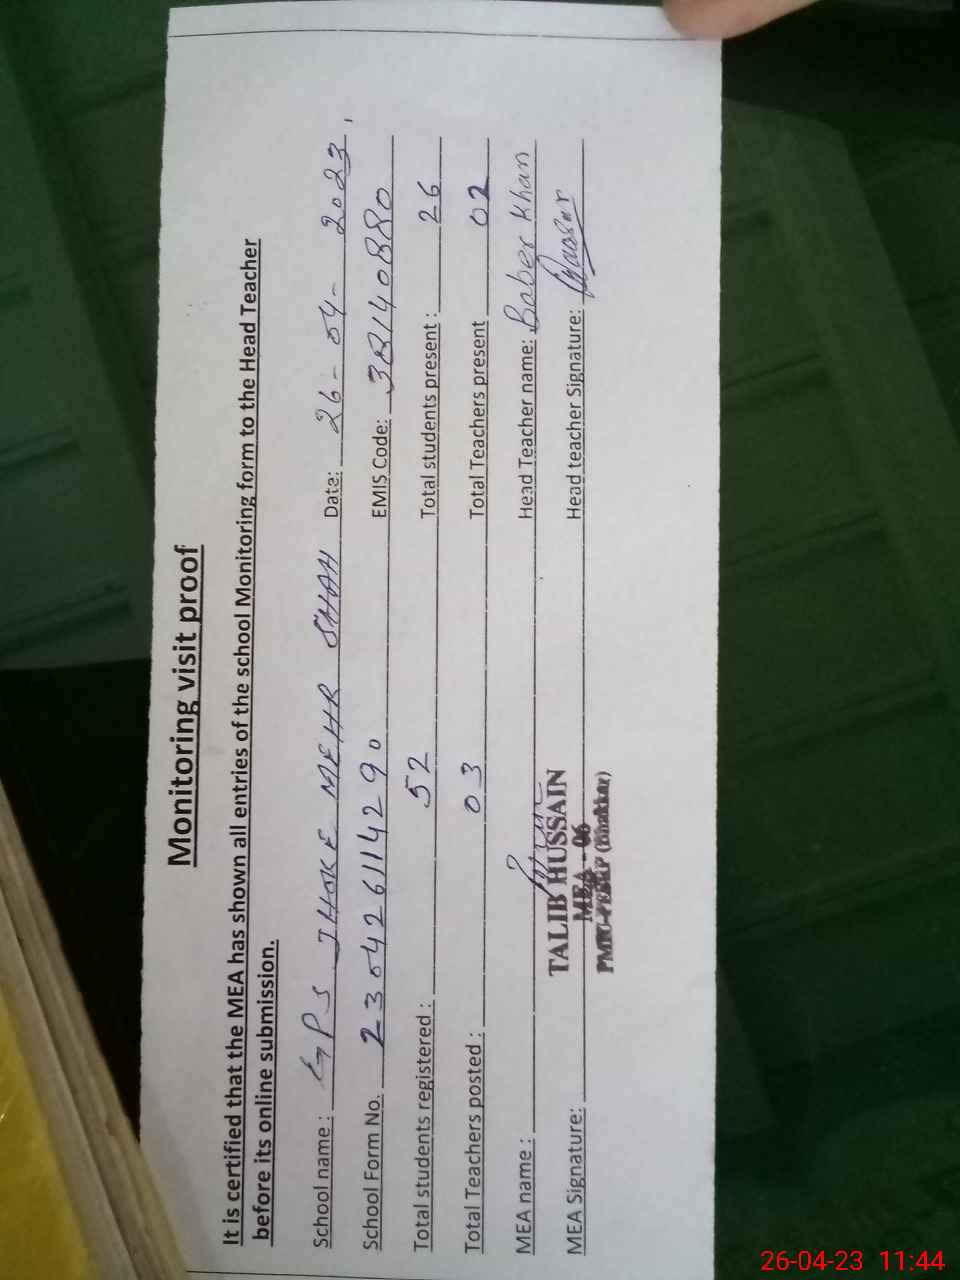 Monitoring visit proof
It is certified that the MEA has shown all entries of the school Monitoring form to the Head Teacher
before its online submission.
School name : GPS JHOKE MEHR SHAH Date: 26-04-2023
School Form No. 2304261114290 EMIS Code: 38140880
Total students registered : 52 Total students present : 26
Total Teachers posted : 03 Total Teachers present 02
MEA name : Head Teacher name: Baber Khan
MEA Signature: Head teacher Signature:
TALIB HUSSAIN
MEA - 06
(Bhakkar)
26-04-23 11:44